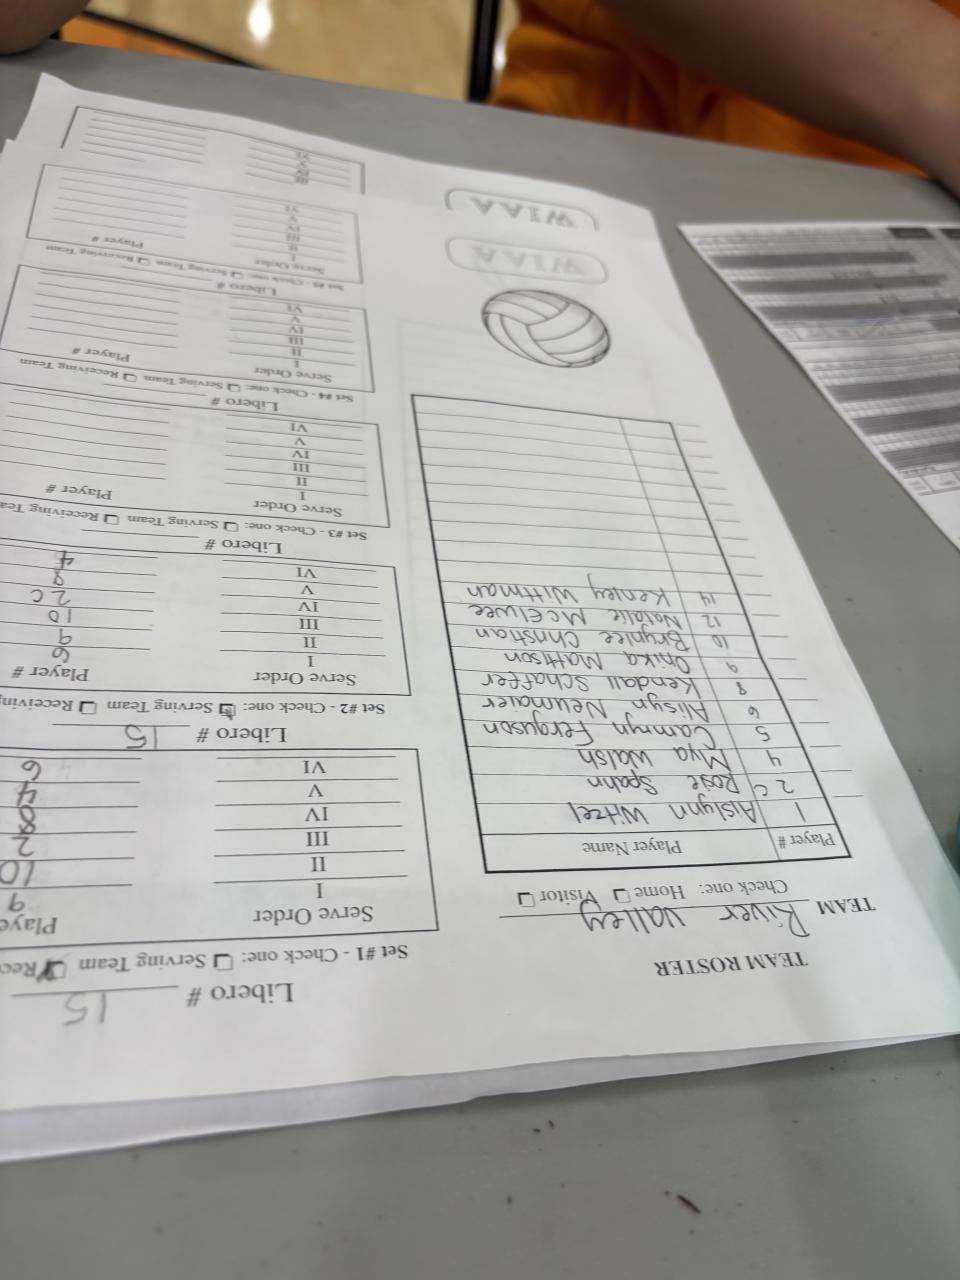 TEAM ROSTER
TEAM River Valley
Check one: Home ☐ Visitor ☐
Player # Player Name
1 Aislynn Witzel
2 C Rosie Spahn
4 Mya Walsh
5 Camryn Ferguson
6 Alisyn Neumaier
8 Kendall Schaffer
9 Onika Mattson
10 Brynlee Christian
12 Natalie McElwee
14 Kenley Wittman
WIAA
WIAA
Libero # 15
Set #1 - Check one: ☐ Serving Team ☑ Rec
Serve Order Playe
I 9
II 10
III 2
IV 8
V 4
VI 6
Libero # 15
Set #2 - Check one: ☑ Serving Team ☐ Receiving
Serve Order Player #
I 6
II 9
III 10
IV 2 C
V 8
VI 4
Libero #
Set #3 - Check one: ☐ Serving Team ☐ Receiving Tea
Serve Order Player #
I
II
III
IV
V
VI
Libero #
Set #4 - Check one: ☐ Serving Team ☐ Receiving Team
Serve Order Player #
I
II
III
IV
V
VI
Libero #
Set #5 - Check one: ☐ Serving Team ☐ Receiving Team
Serve Order Player #
I
II
III
IV
V
VI
III
IV
V
VI